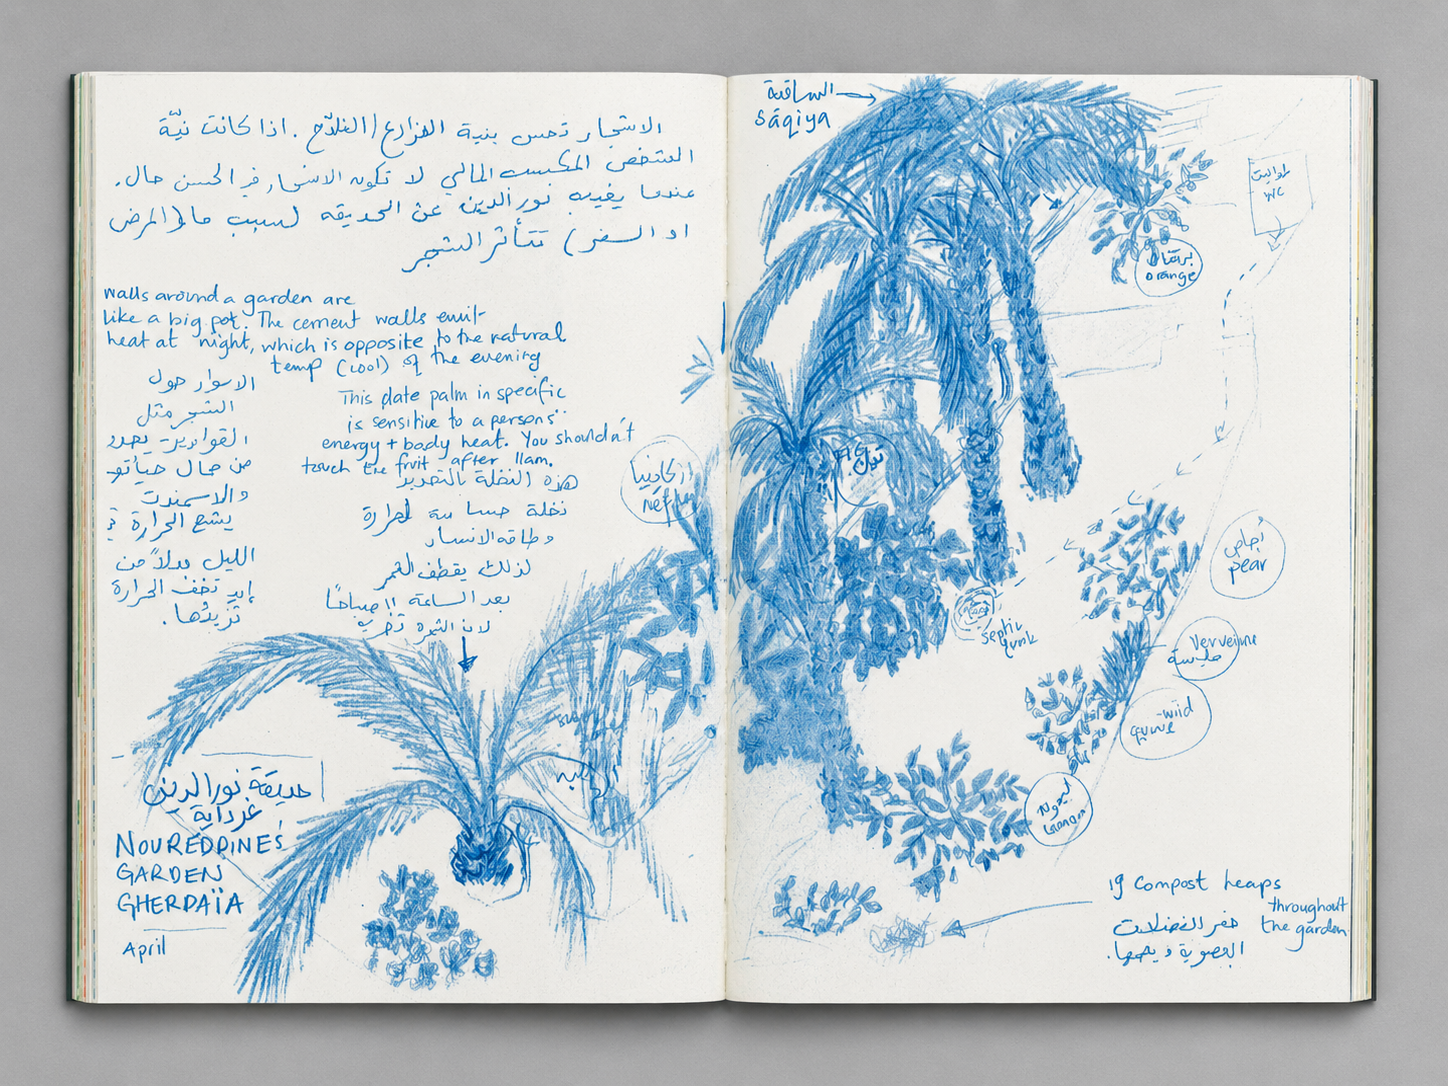 الاشجار تحس بنية المزارع/الفلاح. اذا كانت نيّة
الشخص المكسب المالي لا تكون الاشجار في الحسن حال.
عندما يغيب نور الدين عن الحديقه لسبب ما (المرض
او السفر) تتأثر الشجر
walls around a garden are
like a big pot. The cement walls emit
heat at night, which is opposite to the natural
temp (cool) of the evening
الاسوار حول
الشجر مثل
القوارير يحدد
من حياتو
والاسمنت
يشع الحرارة
الليل بدلاً من
تخف الحرارة
تزيدها.
This date palm in specific
is sensitive to a persons
energy + body heat. You shouldn't
touch the fruit after 11am.
هذه النخلة بالتحديد
نخلة حساسة لحرارة
وطاقة الانسان
لذلك يقطف التمر
بعد الساعة 11 صباحًا
لان الثمرة
حديقة نور الدين
غرداية
NOUREDDINE'S
GARDEN
GHERDAÏA
April
الساقية
sāqiya
طواليت
WC
برتقال
orange
FIG
تين
septic
tank
أجاص
pear
Verveine
wild
ليمونة
19 compost heaps
throughout
the garden
حفر الفضلات
العضوية